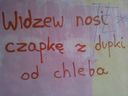 Widzew nosi
czapkę z dupki
od chleba